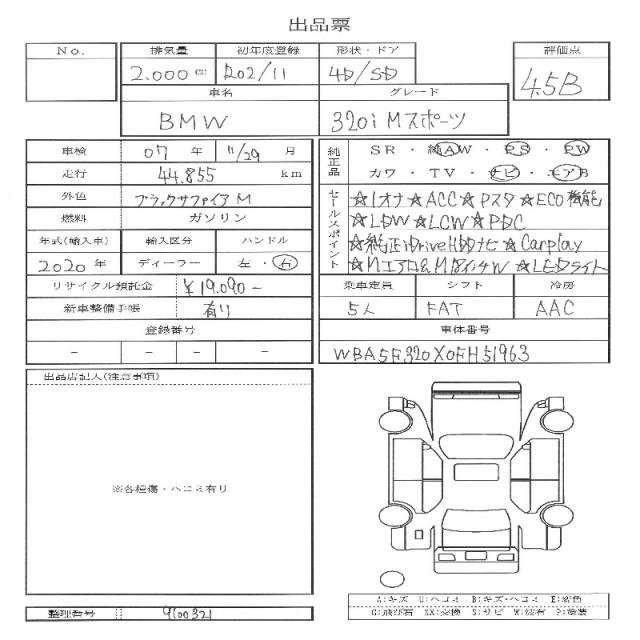 出品票
No. 排気量 初年度登録 形状・ドア 評価点
2.000 cc R02/11 4D/5D 4.5B
車名 グレード
BMW 320i Mスポーツ
車検 07 年 11/29 月
走行 44.855 km
外色 ブラックサファイアM
燃料 ガソリン
年式(輸入車) 輸入区分 ハンドル
2020 年 ディーラー 左・右
リサイクル預託金 ¥19.090-
新車整備手帳 有り
登録番号
- - - -
純正品 SR・純AW・PS・PW
カワ・TV・ナビ・エアB
セールスポイント ☆1オナ☆ACC☆Pスタ☆ECO機能
☆LDW☆LCW☆PDC
☆純正iDriveHDDナビ☆Carplay
☆Mエアロ&M18インチAW☆LEDライト
乗車定員 シフト 冷房
5人 FAT AAC
車体番号
WBA5F320X0FH51963
出品店記入(注意事項)
※各種傷・ヘコミ有り
A:キズ U:ヘコミ B:キズ・ヘコミ E:
G:飛び石 XX:交換 S:サビ W:波有 P:
整理番号 9100321